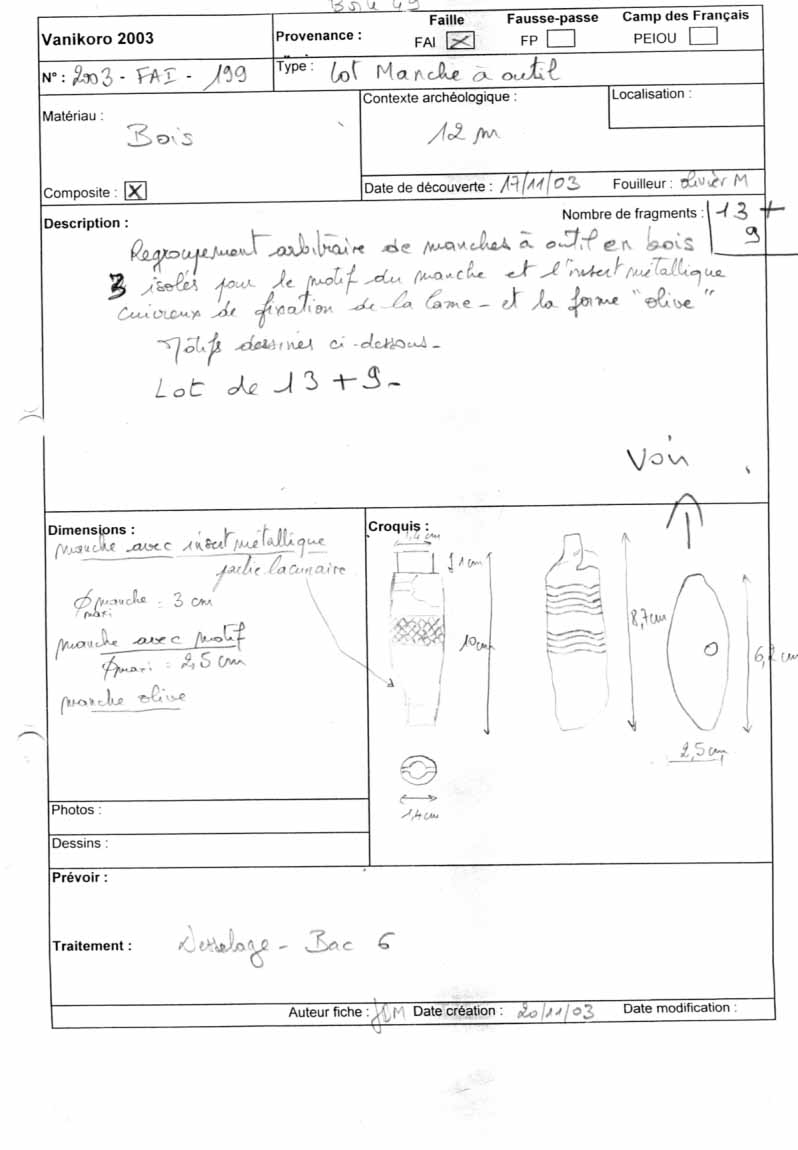 Vanikoro 2003
Provenance :
Faille
FAI ☒
Fausse-passe
FP ☐
Camp des Français
PEIOU ☐
N° : 2003 - FAI - 199
Type : Lot Manche à outil
Matériau :
Bois
Composite : ☒
Contexte archéologique :
12 m
Localisation :
Date de découverte : 17/11/03
Fouilleur : Olivier M
Description :
Nombre de fragments : 13 +
9
Regroupement arbitraire de manches à outil en bois
3 isolés pour le motif du manche et l'insert métallique
cuivreux de fixation de la lame - et la forme "olive"
Motifs dessinés ci-dessous -
Lot de 13 + 9 -
Voir
Dimensions :
manche avec insert métallique
partie lacunaire
ϕ manche = 3 cm
maxi
manche avec motif
ϕ maxi = 2,5 cm
manche olive
Croquis :
1,4 cm
1 cm
10 cm
1,4 cm
8,7 cm
6,2 cm
2,5 cm
Photos :
Dessins :
Prévoir :
Traitement : Dessalage - Bac 6
Auteur fiche :
Date création : 20/11/03
Date modification :